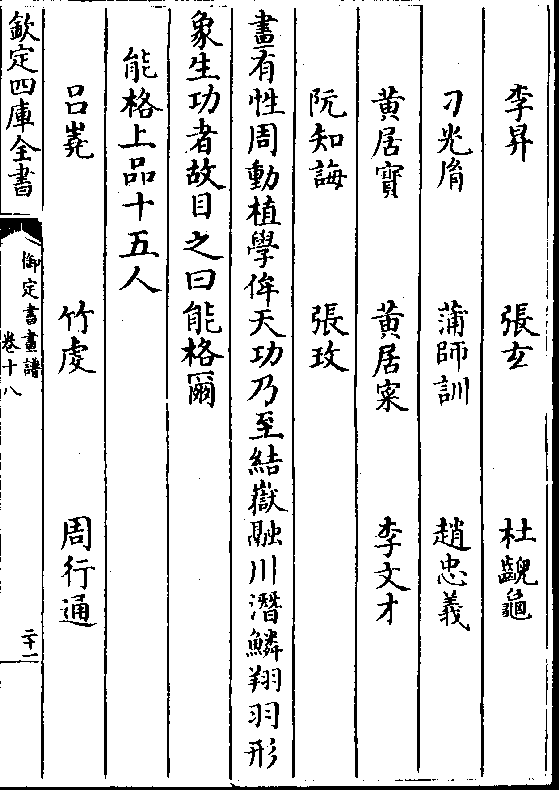 李昇　張玄　杜齯龜
刁光胤　蒲師訓　趙忠義
黄居寶　黄居寀　李文才
阮知誨　張玫
畫有性周動植學侔天功乃至結嶽融川潛鱗翔羽形
象生功者故目之曰能格爾
能格上品十五人
呂嶤　竹虔　周行通
欽定四庫全書
御定書畫譜
卷十八
二十一